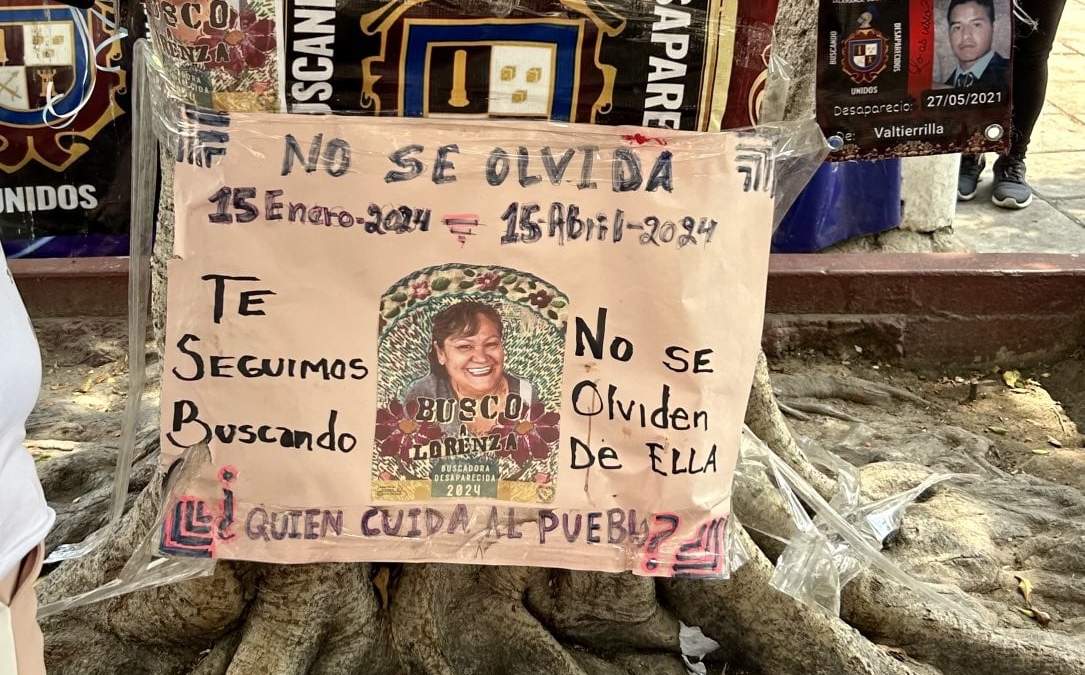 BUSCO
LORENZA
UNIDOS
BUSCAN
DESAPARE
BUSCANDO
DESAPARECIDOS
UNIDOS
Desaparecio: 27/05/2021
De: Valtierrilla
NO SE OLVIDA
15 Enero-2024 = 15-Abril-2024
TE
SEGUIMOS
BUSCANDO
BUSCO
A
LORENZA
BUSCADORA
DESAPARECIDA
2024
No SE
Olviden
De ELLA
¿QUIEN CUIDA AL PUEBLO?